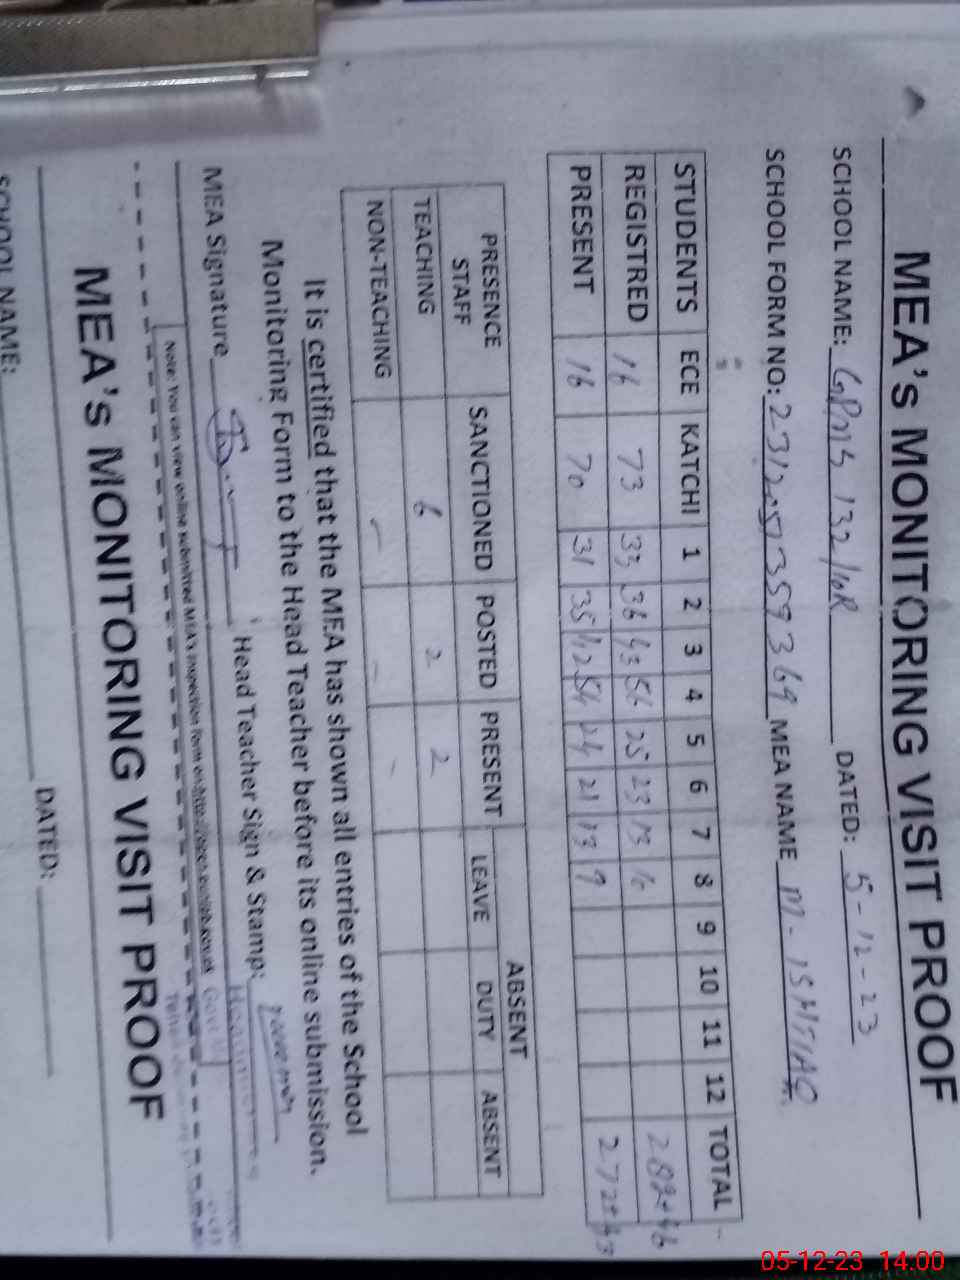 MEA's MONITORING VISIT PROOF
SCHOOL NAME: GPMS 132/10R DATED: 5-12-23
SCHOOL FORM NO: 2312051359369 MEA NAME M-ISHTIAQ
STUDENTS ECE KATCHI 1 2 3 4 5 6 7 8 9 10 11 12 TOTAL
REGISTRED 16 73 33 36 43 56 25 23 13 10 282+46
PRESENT 16 70 31 35 42 54 24 21 13 9 272+43
PRESENCE STAFF SANCTIONED POSTED PRESENT ABSENT
LEAVE DUTY ABSENT
TEACHING 6 2 2
NON-TEACHING - - -
It is certified that the MEA has shown all entries of the School
Monitoring Form to the Head Teacher before its online submission.
MEA Signature Head Teacher Sign & Stamp:
Note: You can view online submitted MEA's inspection form on
MEA's MONITORING VISIT PROOF
SCHOOL NAME: DATED:
05-12-23 14:00